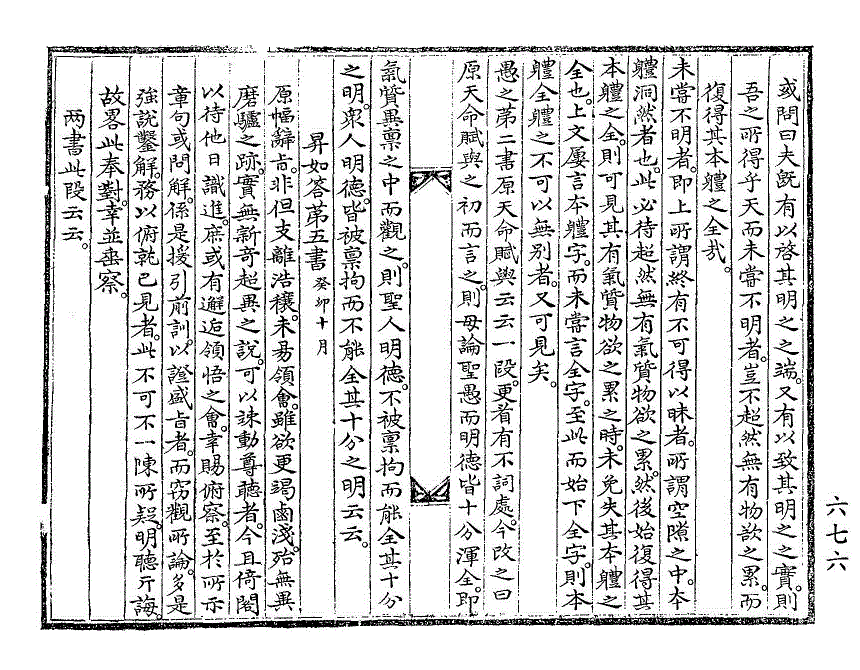 或問曰夫旣有以啓其明之之端。又有以致其明之之實。則
吾之所得乎天而未嘗不明者。豈不超然無有物欲之累。而
復得其本軆之全哉。
未嘗不明者。卽上所謂終有不可得以昧者。所謂空隙之中。本
軆洞然者也。此必待超然無有氣質物欲之累。然後始復得其
本軆之全。則可見其有氣質物欲之累之時。未免失其本軆之
全也。上文屢言本軆字。而未嘗言全字。至此而始下全字。則本
軆全軆之不可以無別者。又可見矣。
愚之第二書原天命賦與云云一段。更看有不詞處。今改之曰
原天命賦與之初而言之。則毋論聖愚而明德皆十分渾全。卽
氣質異禀之中而觀之。則聖人明德。不被禀拘而能全其十分
之明。衆人明德。皆被禀拘而不能全其十分之明云云。
昇如答第五書 癸卯十月
原幅辭旨。非但支離浩穰。未易領會。雖欲更竭鹵淺。殆無異
磨驢之跡。實無新奇超異之說。可以竦動尊聽者。今且倚閣
以待他日識進。庶或有邂逅領悟之會。幸賜俯察。至於所示
章句或問解。係是援引前訓。以證盛旨者。而竊觀所論。多是
強說鑿解。務以俯就己見者。此不可不一陳所疑。明聽斤誨。
故畧此奉對。幸並垂察。
两書此段云云。
六七六